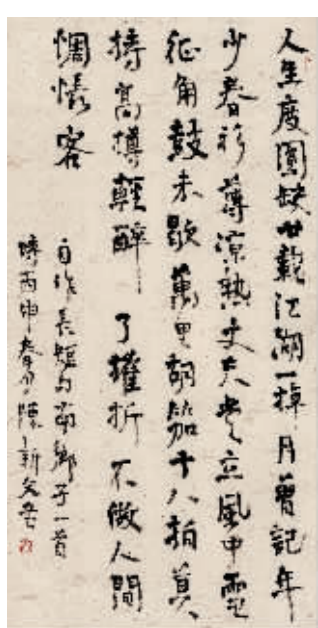 人生度圓缺廿載江湖一棹月曾記年
少春衫薄涼熱丈夫當立風中雪
征角鼓未歇萬里胡笳十八拍莫
持高樽輕醉了摧折不做人間
惆悵客
自作長短句南鄉子一首
時丙申春分陳新文書